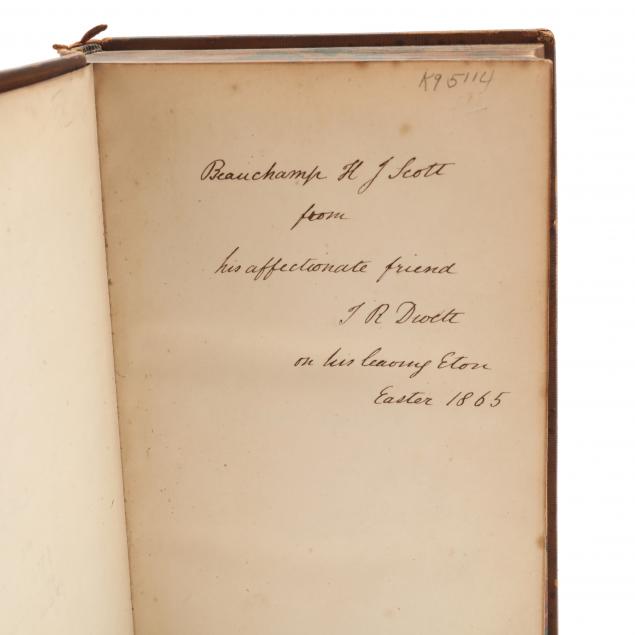 K95114
Beauchamp H J Scott
from
his affectionate friend
J R Divett
on his leaving Eton
Easter 1865